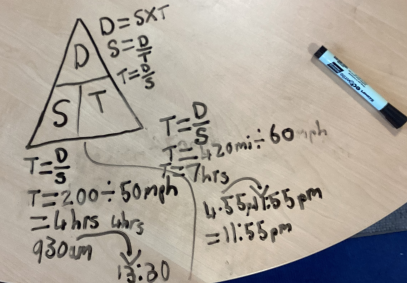 D=SXT
S=D/T
T=D/S
D
S T
T=D/S
T=200÷50mph
=4hrs 4hrs
930am
13:30
T=D/S
T=420mi÷60mph
T=7hrs
4:55, 11:55pm
=11:55pm